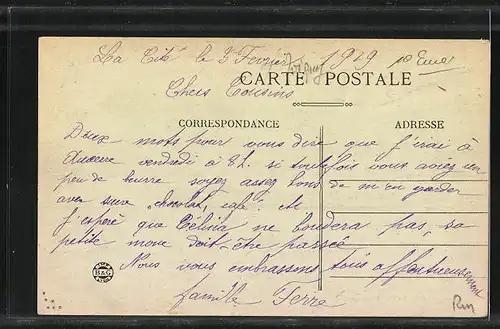 La Cité le 3 Fevrier 1919
CARTE POSTALE
Chers Cousins
CORRESPONDANCE
ADRESSE
Deux mots pour vous dire que j'irai à
Auxerre vendredi à 8h. si toutefois vous aviez un
peu de beurre soyez assez bons de m'en garder
avec sucre "chocolat, café" etc
J'espère que Célina ne boudera pas, sa
petite moue doit être passée
Nous vous embrassons tous affectueusement
famille Ferré
B&G